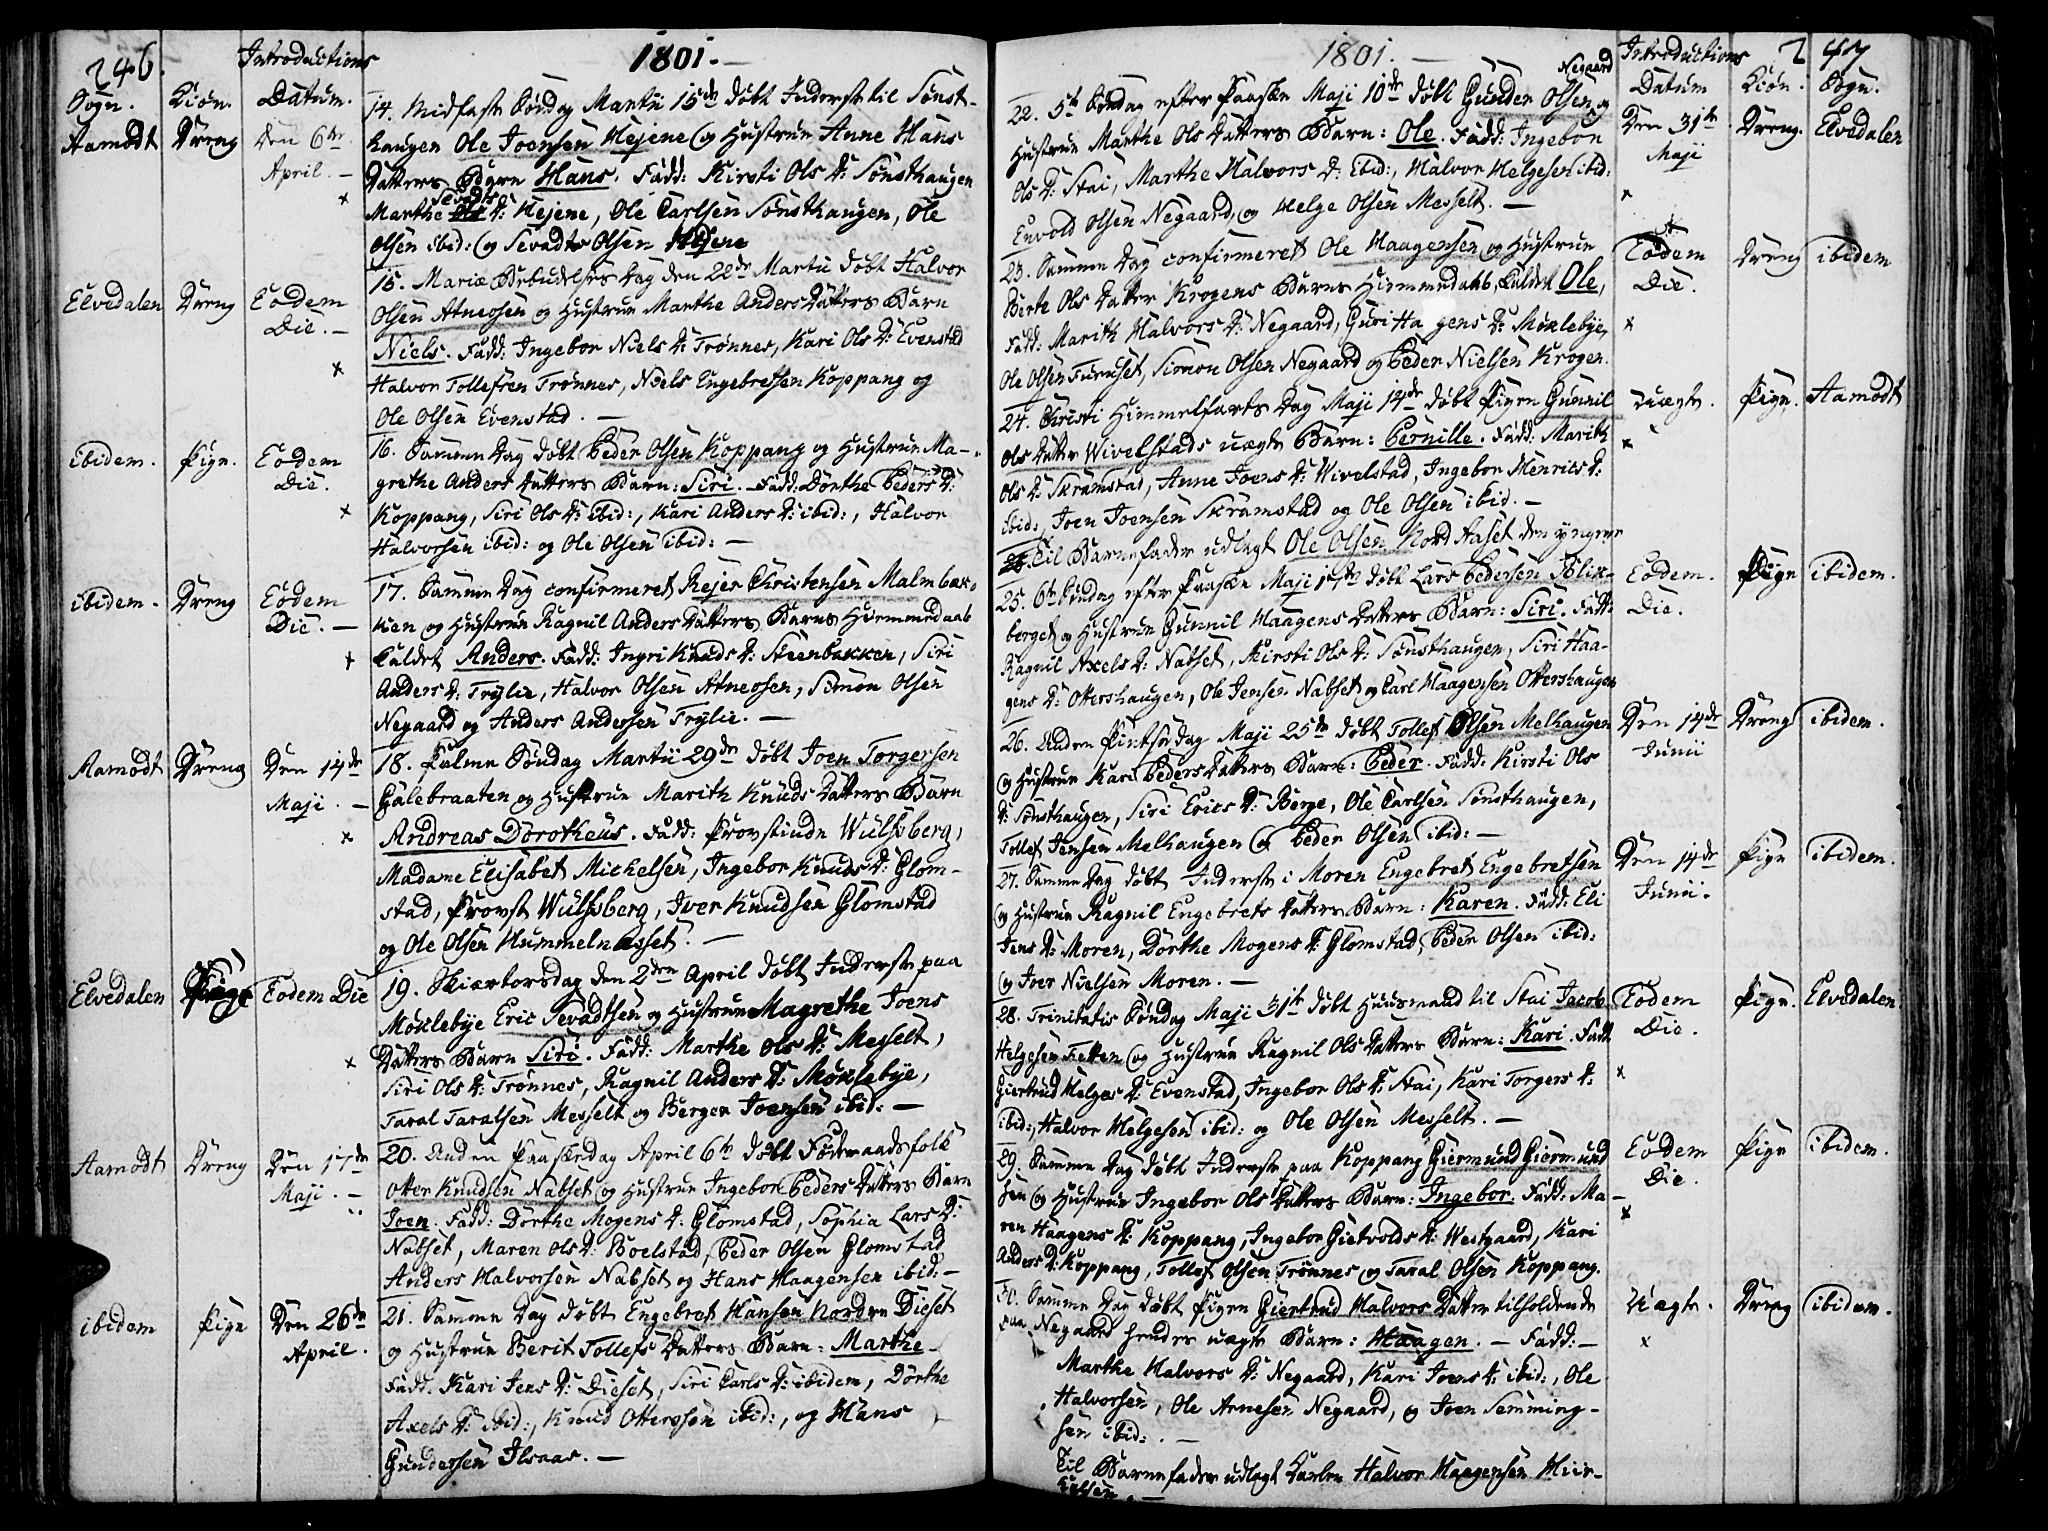 246.
Introductions
1801. —
Sogn. Kiön. Datum.
Aamodt Dreng Den 6te April. —
14. Midfaste Söndag Martii 15de döbt Inderste til Sönst-
haugen Ole Joensen Hejene og Hustrue Anne Hans
Datters Barn Hans. Fadd: Kirsti Ols D: Sönsthaugen
Marthe Sevadts D: Hejene, Ole Carlsen Sönsthaugen, Ole
Olsen ibid: og Sevadt Olsen Hejene
Elvedalen Dreng Eodem Die. —
15. Mariæ Bebudelses Dag den 22de Martii döbt Halvor
Olsen Atneosen og Hustrue Marthe Anders Datters Barn
Niels. Fadd: Ingebor Niels D: Trönnes, Kari Ols D: Evenstad
Halvor Tollefsen Trönnes, Niels Engebretsen Koppang og
Ole Olsen Evenstad. —
ibidem. Pige. Eodem Die.
16. Samme Dag döbt Peder Olsen Koppang og Hustrue Ma-
grethe Anders Datters Barn: Siri. Fadd: Dorthe Peders D:
Koppang, Siri Ols D: ibid:, Kari Anders D: ibid:, Halvor
Halvorsen ibid: og Ole Olsen ibid: —
ibidem. Dreng Eodem Die. —
17. Samme Dag confirmeret Rejer Christensen Malmbæk-
ken og Hustrue Ragnil Anders Datters Barns Hiemmedaab
Kaldet Anders. Fadd: Ingri Knuds D: Steenbakken, Siri
Anders D: Trylie, Halvor Olsen Atneosen, Simon Olsen
Negaard og Anders Andersen Trylie. —
Aamodt Dreng Den 14de Maji. —
18. Palme Söndag Martii 29de döbt Joen Torgersen
Galebraaten og Hustrue Marith Knuds Datters Barn
Andreas Dorotheus. Fadd: Provstinde Wulfsberg,
Madame Elisabet Michelsen, Ingebor Knuds D: Glom-
stad, Provst Wulfsberg, Iver Knudsen Glomstad
og Ole Olsen Hummelnæsset. —
Elvedalen Pige Eodem Die
19. Skiærtorsdag den 2den April döbt Inderste paa
Möklebye Eric Sevadtsen og Hustrue Magrethe Joens
Datters Barn Siri. Fadd: Marthe Ols D: Messelt,
Siri Ols D: Trönnes, Ragnil Anders D: Möklebye,
Taral Taralsen Messelt og Berger Joensen ibid: —
Aamodt Dreng Den 17de Maji. —
20. Anden Paaskedag April 6te döbt Föderaadsfolk
Otter Knudsen Nabset og Hustrue Ingebor Peders Datters Barn
Joen. Fadd: Dorthe Mogens D: Glomstad, Sophia Lars D:
Nabset, Maren Ols D: Boelstad, Peder Olsen Glomstad
Anders Halvorsen Nabset og Hans Haagensen ibid: —
ibidem Pige Den 26de April.
21. Samme Dag döbt Engebret Hansen Nordre Dieset
og Hustrue Berit Tollefs Datters Barn: Marthe.
Fadd. Kari Jens D: Dieset, Siri Carls D: ibidem, Dorthe
Axels D: ibid:, Knud Ottersen ibid:, og Hans
Gundersen Ilsaas. —
1801. —
Introductions
247
Datum Kiön. Sogn.
Negaard
22. 5te Söndag efter Paaske Maji 10de döbt Gunder Olsen og
Hustrue Marthe Ols Datters Barn: Ole. Fadd: Ingebor
Ols D: Stai, Marthe Halvors D: ibid:, Halvor Helgesen ibid:
Envold Olsen Negaard, og Helge Olsen Messelt. —
Den 31te Maji Dreng. Elvedalen
23. Samme Dag confirmeret Ole Haagensen og Hustrue
Berte Ols Datter Krogens Barns Hiemmedaab, Kaldet Ole,
Fadd: Marith Halvors D: Negaard, Guri Ha gens D: Möklebye,
Ole Olsen Furuset, Simon Olsen Negaard og Peder Nielsen Krogen.
Eodem Die. Dreng ibidem
24. Christi Himmelfarts Dag Maji 14de döbt Pigen Gunnil
Ols Datter Wivelstads uægte Barn: Pernille. Fadd: Marith
Ols D: Skramstad, Anne Joens D: Wivelstad, Ingebor Henrics D:
ibid:, Joen Joensen Skramstad og Ole Olsen ibid. —
Til Barnefader udlagt Ole Olsen Nord Aaset den yngere
Uægte. Pige. Aamodt
25. 6te Söndag efter Paaske Maji 17de döbt Lars Pedersen Blix-
berget og Hustrue Gunnil Haagens Datters Barn: Siri. Fadd:
Ragnil Axels D: Nabset, Kirsti Ols D: Sönsthaugen, Siri Haa-
gens D: Ottershaugen, Ole Jensen Nabset og Carl Haagensen Ottershaugen
Eodem Die. Pige ibidem.
26. Anden Pintsedag Maji 25de döbt Tollef Olsen Melhaugen
og Hustrue Kari Peders Datters Barn: Peder. Fadd: Kirsti Ols
D: Sönsthaugen, Siri Erics D: Berge, Ole Carlsen Sönsthaugen,
Tollef Jensen Melhaugen og Peder Olsen ibid: —
Den 14de Junii Dreng ibidem.
27. Samme Dag döbt Inderste i Moren Engebret Engebretsen
og Hustrue Ragnil Engebrets Datters Barn: Karen. Fadd: Eli
Jens D: Moren, Dorthe Mogens D: Glomstad, Peder Olsen ibid:
og Iver Nielsen Moren. —
Den 14de Junii. Pige ibidem.
28. Trinitatis Söndag Maji 31te döbt Huusmand til Stai Jacob
Helgesen Fetten og Hustrue Ragnil Ols Datters Barn: Kari. Fadd
Giertrud Helges D: Evenstad, Ingebor Ols D: Stai, Kari Torgers D:
ibid:, Halvor Helgesen ibid: og Ole Olsen Messelt. —
Eodem Die. Pige. Elvedalen
29. Samme Dag döbt Inderste paa Koppang Giermund Giermund
sen og Hustrue Ingebor Ols Datters Barn: Ingebor. Fadd: Ma-
ren Haagens D: Koppang, Ingebor Gietvolds D: Westgaard, Kari
Anders D: Koppang, Tollef Olsen Trönnes og Taral Olsen Koppang.
Eodem Die. Pige ibidem.
30. Samme Dag döbt Pigen Giertrud Halvors Datter tilholdende
paa Negaard hendes uægte Barn: Haagen. — Fadd: —
Marthe Halvors D: Negaard, Kari Joens D: ibid:, Ole
Halvorsen, Ole Arnesen Negaard, og Joen Semming-
sen ibid: . —
Til Barnefader udlagt Karlen Halvor Haagensen Mir-
Uægte. Dreng ibidem.